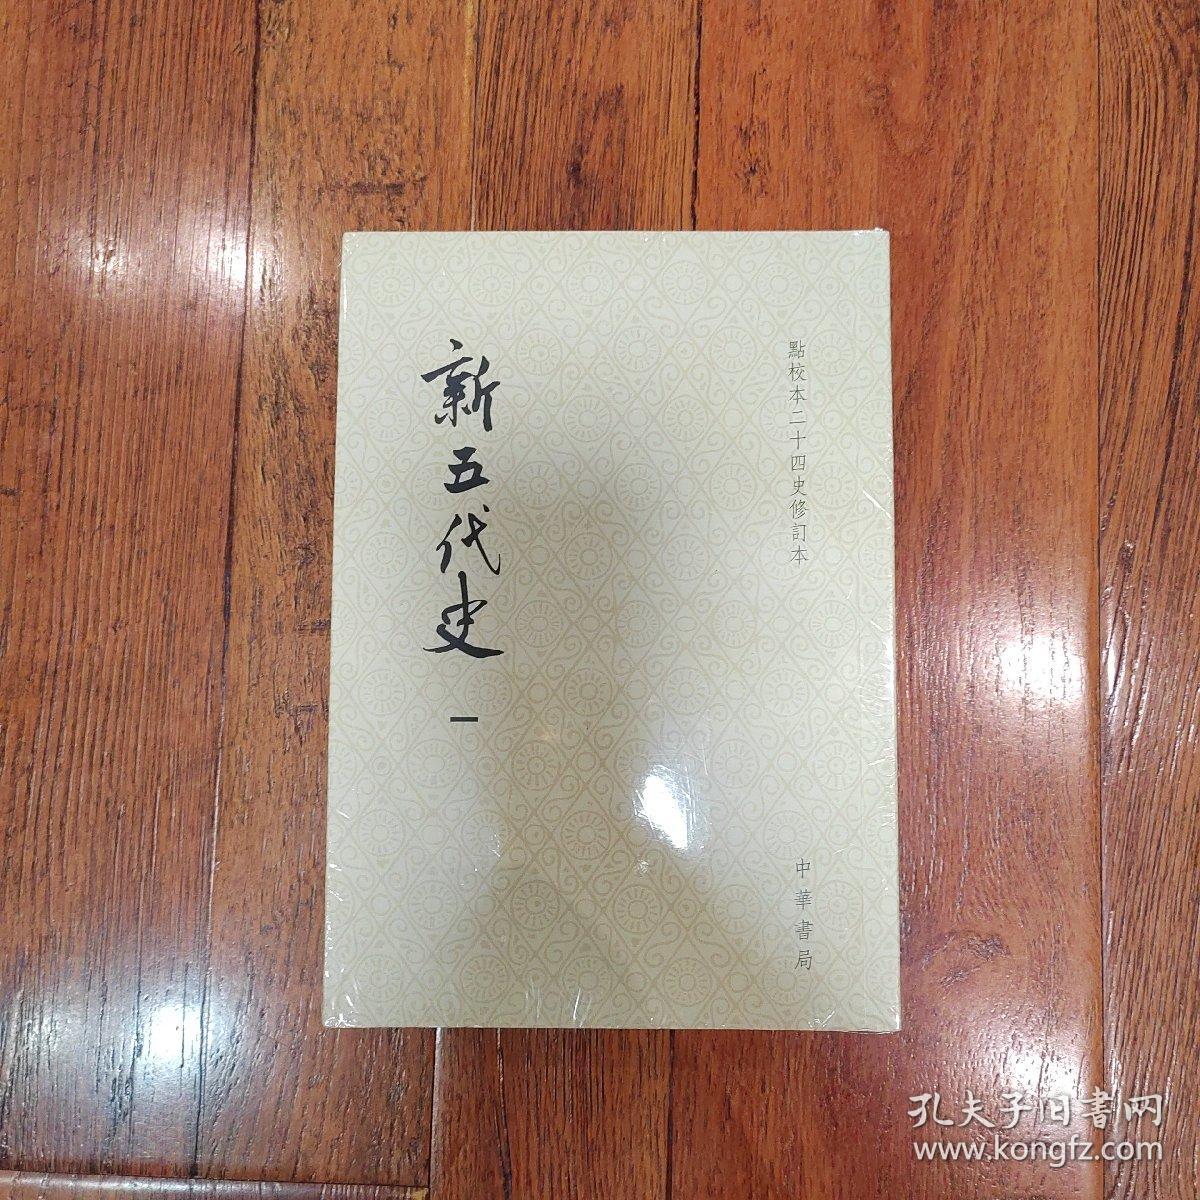 點校本二十四史修訂本
新五代史 一
中華書局
孔夫子旧書网
www.kongfz.com